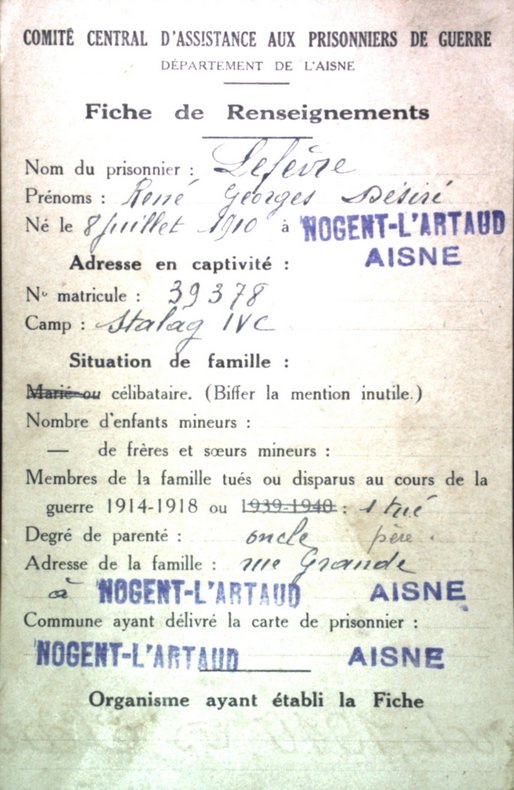 COMITÉ CENTRAL D'ASSISTANCE AUX PRISONNIERS DE GUERRE
DÉPARTEMENT DE L'AISNE
Fiche de Renseignements
Nom du prisonnier : Lefèvre
Prénoms : René Georges Désiré
Né le 8 Juillet 1910 à NOGENT-L'ARTAUD
AISNE
Adresse en captivité :
No matricule : 39378
Camp : Stalag IVC
Situation de famille :
Marié ou célibataire. (Biffer la mention inutile.)
Nombre d'enfants mineurs :
— de frères et sœurs mineurs :
Membres de la famille tués ou disparus au cours de la
guerre 1914-1918 ou 1939-1940 : 1 tué
Degré de parenté : oncle père.
Adresse de la famille : rue Grande
à NOGENT-L'ARTAUD AISNE
Commune ayant délivré la carte de prisonnier :
NOGENT-L'ARTAUD AISNE
Organisme ayant établi la Fiche